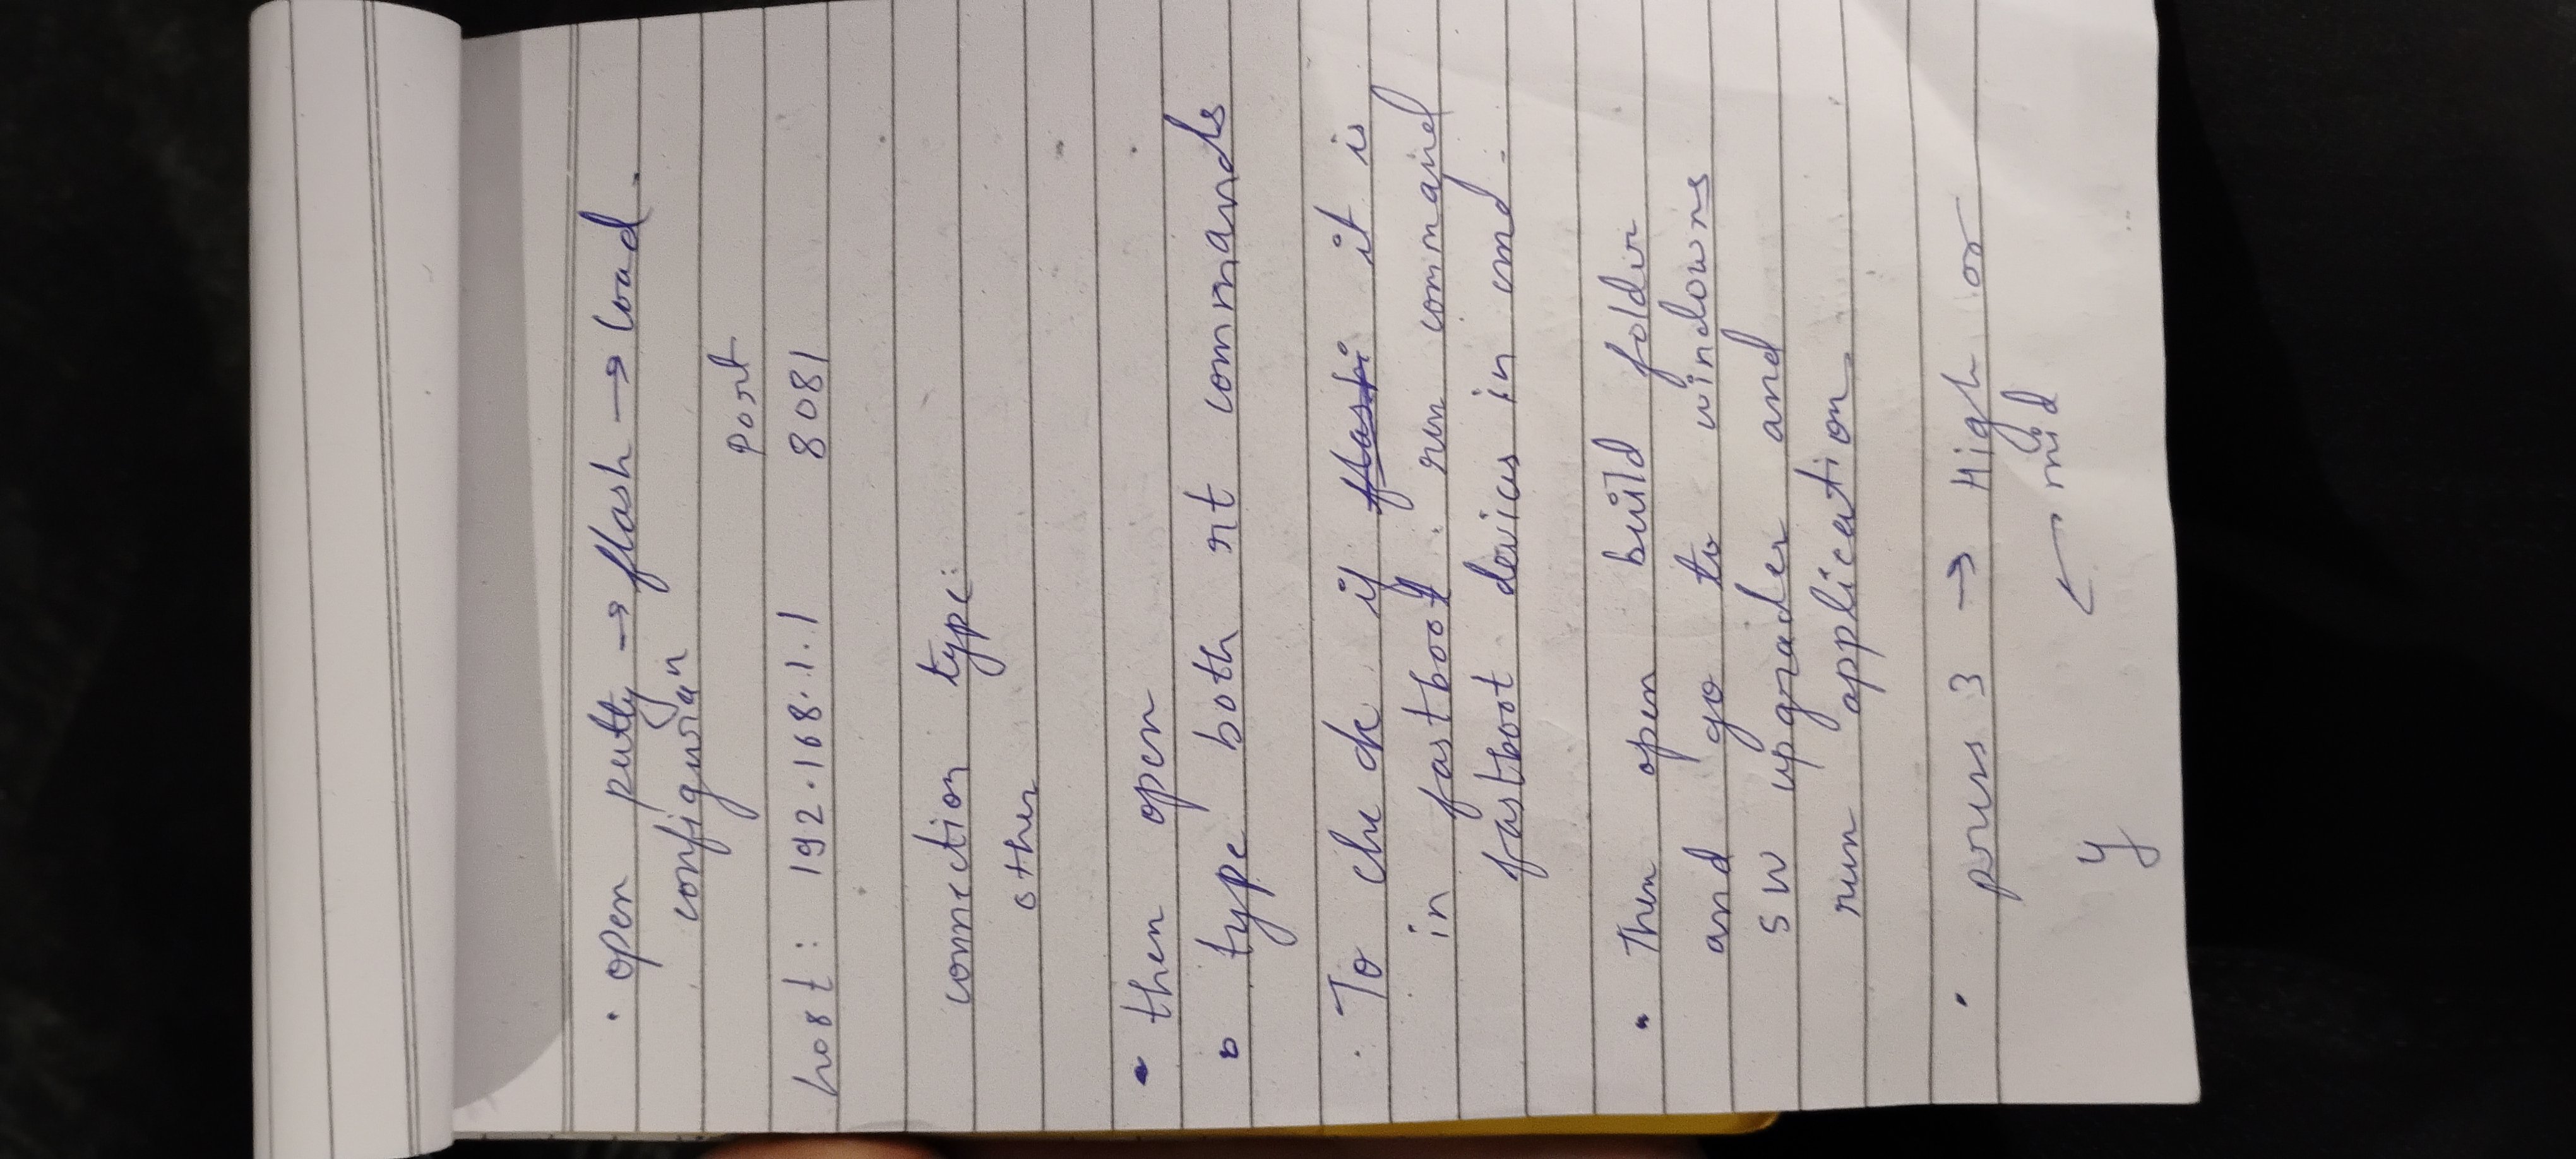 · open putty → flash → load.
configuraⁿ
port
host: 192.168.1.1 8081
connection type:
other
• then open
• type both rt commands
· To check if it is
in fastboot. run command
fastboot devices in cmd.
• Then open build folder
and go to windowns
SW upgrader and
run application
• press 3 → High or
← mid
y